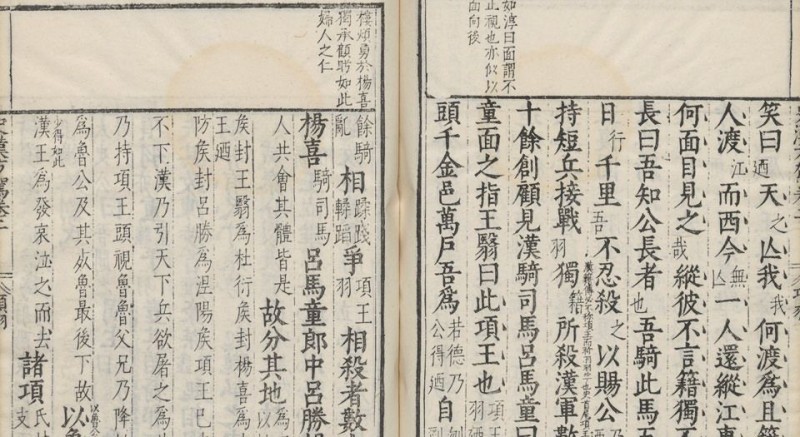 如淳曰面謂不
正視也亦似以
面向後
笑曰迺天之亾我我何渡為且籍
人渡江而西今無亾一人還縱江東
何面目見之哉縱彼不言籍獨不
長曰吾知公長者也吾騎此馬五
日行千里吾不忍殺之以賜公乃
持短兵接戰羽獨籍所殺漢軍數
十餘創顧見漢騎司馬呂馬童曰
童面之指王翳曰此項王也羽迺
頭千金邑萬戶吾為若德乃公得迺自刎
樓煩勇於楊喜
獨承顧眄如此
婦人之仁
餘騎亂相蹂踐轔蹈爭項王羽相殺者數
楊喜騎司馬呂馬童郎中呂勝
人共會其體皆是故分其地為以
王迺矦封王翳為杜衍矦封楊喜為
防矦封呂勝為涅陽矦項王已
不下漢乃引天下兵欲屠之為
乃持項王頭視魯魯父兄乃降
為魯公及其死魯最後下故以魯
少得如此漢王為發哀泣之而去諸項氏支